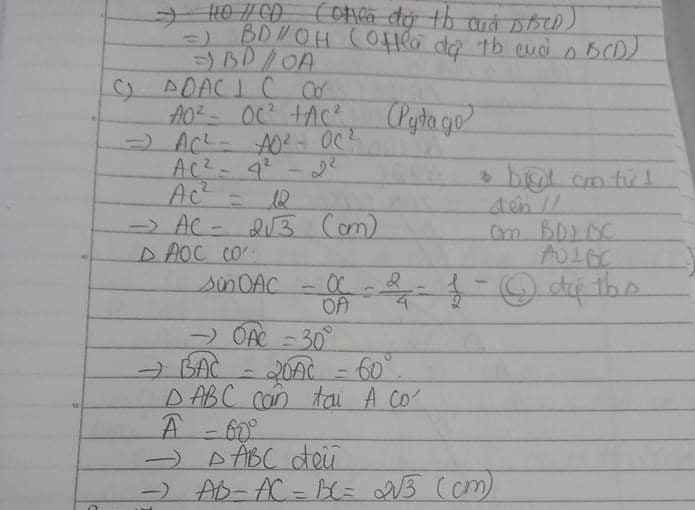 => HO // CD (OH là đg tb của ΔBCD)
=> BD // OH (OH là đg tb của ΔBCD)
=> BD // OA
c) ΔOAC ⊥ C có
AO² = OC² + AC² (Pytago)
=> AC² = AO² - OC²
AC² = 4² - 2²
AC² = 12
-> AC = 2√3 (cm)
* cm từ ⊥
đến //
cm BD⊥BC
AO⊥BC
ΔAOC có:
sin OAC = OC/OA = 2/4 = 1/2
đg tb Δ
-> OAC = 30°
-> BAC = 2OAC = 60°.
ΔABC cân tại A có
Â = 60°
-> ΔABC đều
-> AB = AC = BC = 2√3 (cm)